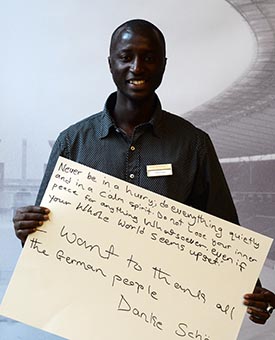 Never be in a hurry; do everything quietly
and in a calm spirit. Do not lose your inner
peace for anything whatsoever even if
your whole world seems upset.
Want to thank all
the German people
Danke Schö